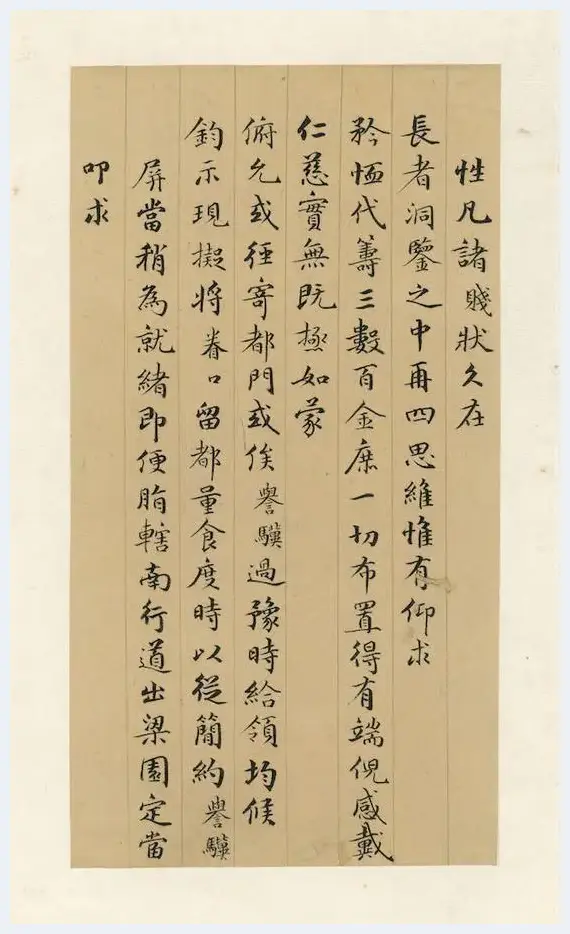 性凡諸賤狀久在
長者洞鑒之中再四思維惟有仰求
矜恤代籌三數百金庶一切布置得有端倪感戴
仁慈實無既極如蒙
俯允或徑寄都門或俟譽驥過豫時給領均候
鈞示現擬將眷口留都量食度時以從簡約譽驥
屏當稍為就緒即便脂轄南行道出梁園定當
叩求